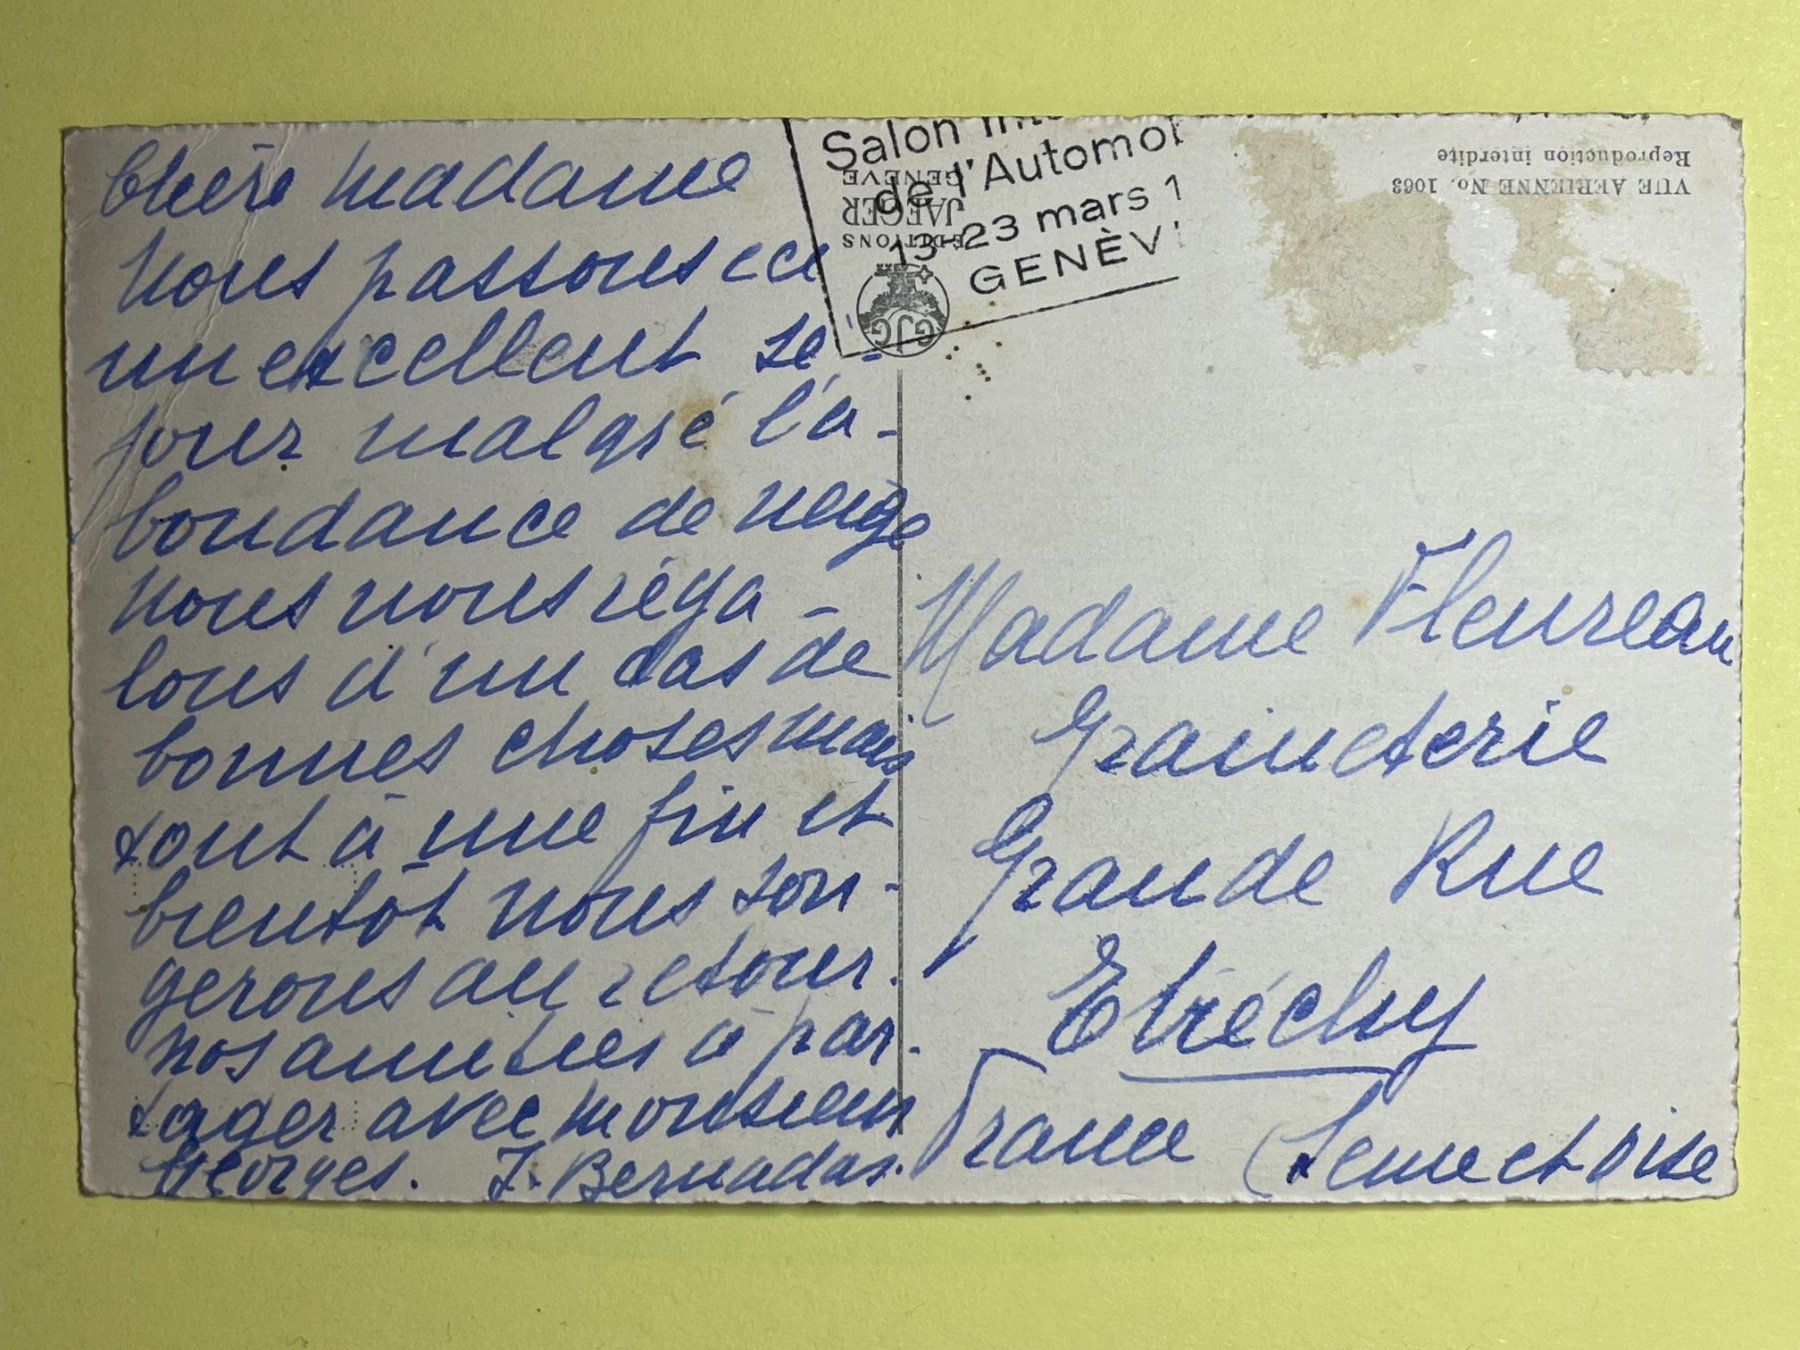 Chère Madame
Nous passons ici
un excellent sé-
jour malgré l'a-
bondance de neige
nous nous réga-
lons d'un tas de
bonnes choses mais
tout à une fin et
bientôt nous son-
gerons au retour.
nos amitiés à par-
tager avec monsieur
Georges. J. Bernadas.
Salon Inte
de l'Automo
13-23 mars 1
GENÈV
EDITIONS
JAEGER
GENÈVE
GJG
VUE AERIENNE No. 1063
Reproduction interdite
Madame Fleureau
Graineterie
Grande Rue
Etréchy
France (Seine et Oise